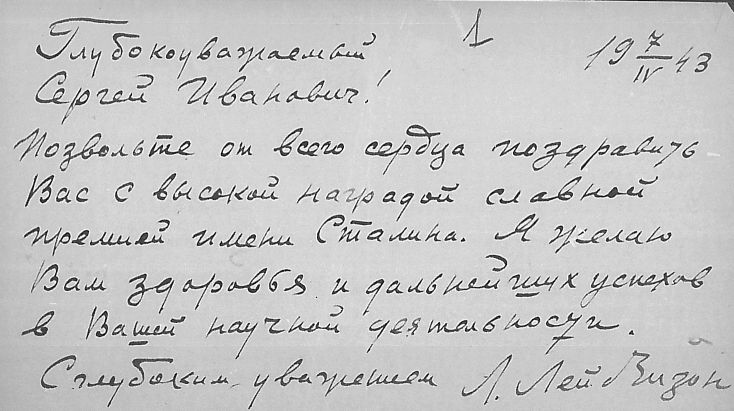 1
Глубокоуважаемый 19 7/IV 43
Сергей Иванович!
Позвольте от всего сердца поздравить
Вас с высокой наградой славной
премией имени Сталина. Я желаю
Вам здоровья и дальнейших успехов
в Вашей научной деятельности.
С глубоким уважением Л. Лейбзон